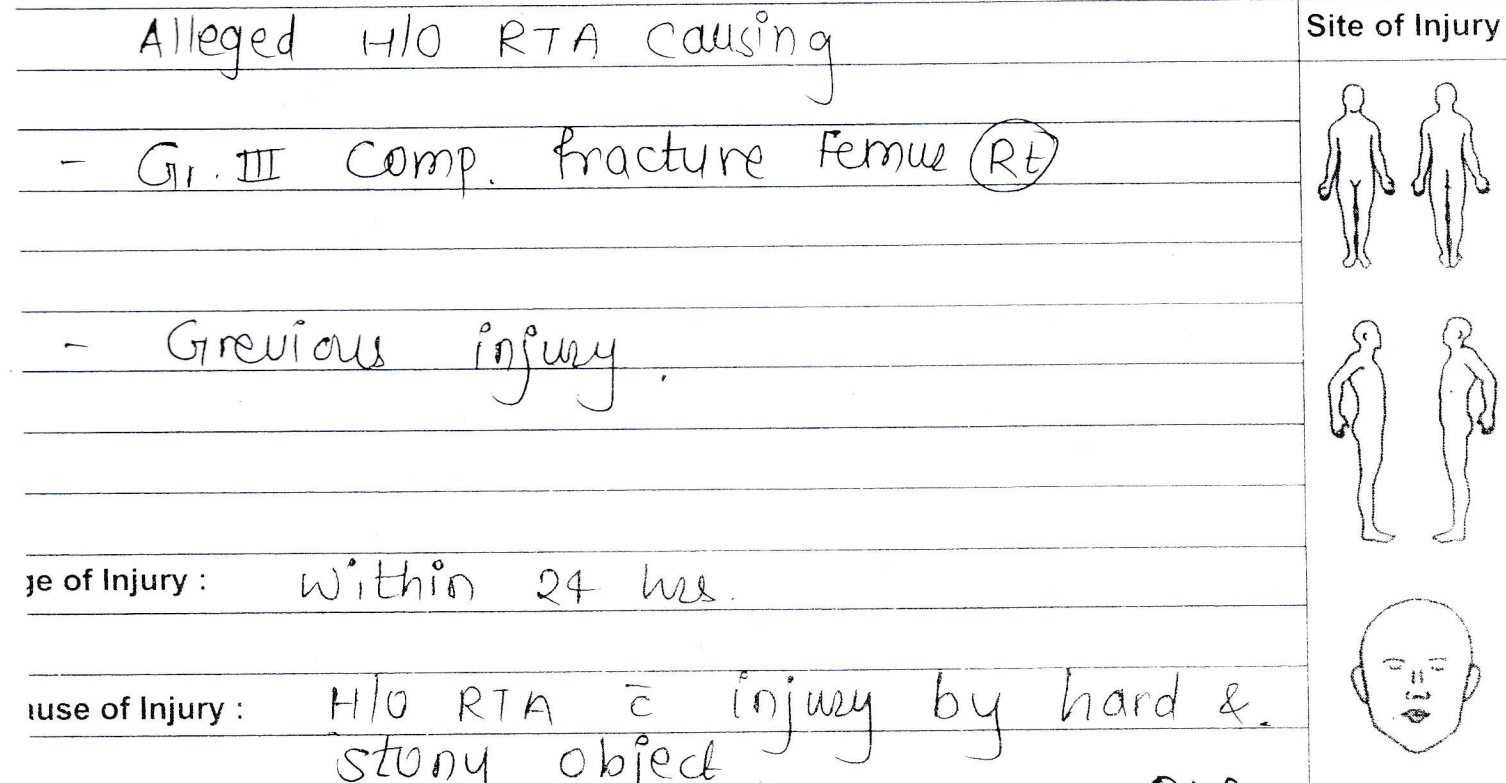 Alleged H/O RTA causing
Site of Injury
- Gr. III Comp. fracture Femur Rt
- Grevious injury.
ge of Injury : Within 24 hrs.
use of Injury : H/O RTA c̄ injury by hard &.
stony object